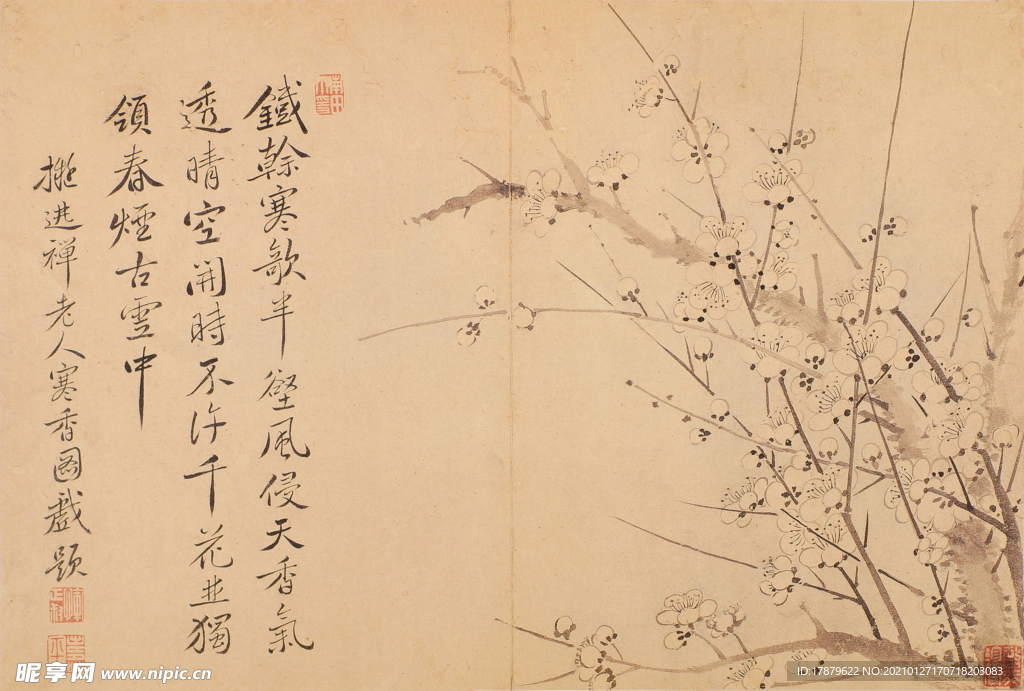 鐵幹寒欹半壁風侵天香氣
透晴空開時不许千花並獨
領春煙古雲中
擬進禪老人寒香圖戲題
昵享网 www.nipic.cn
ID:17879622 NO:20210127170718203083